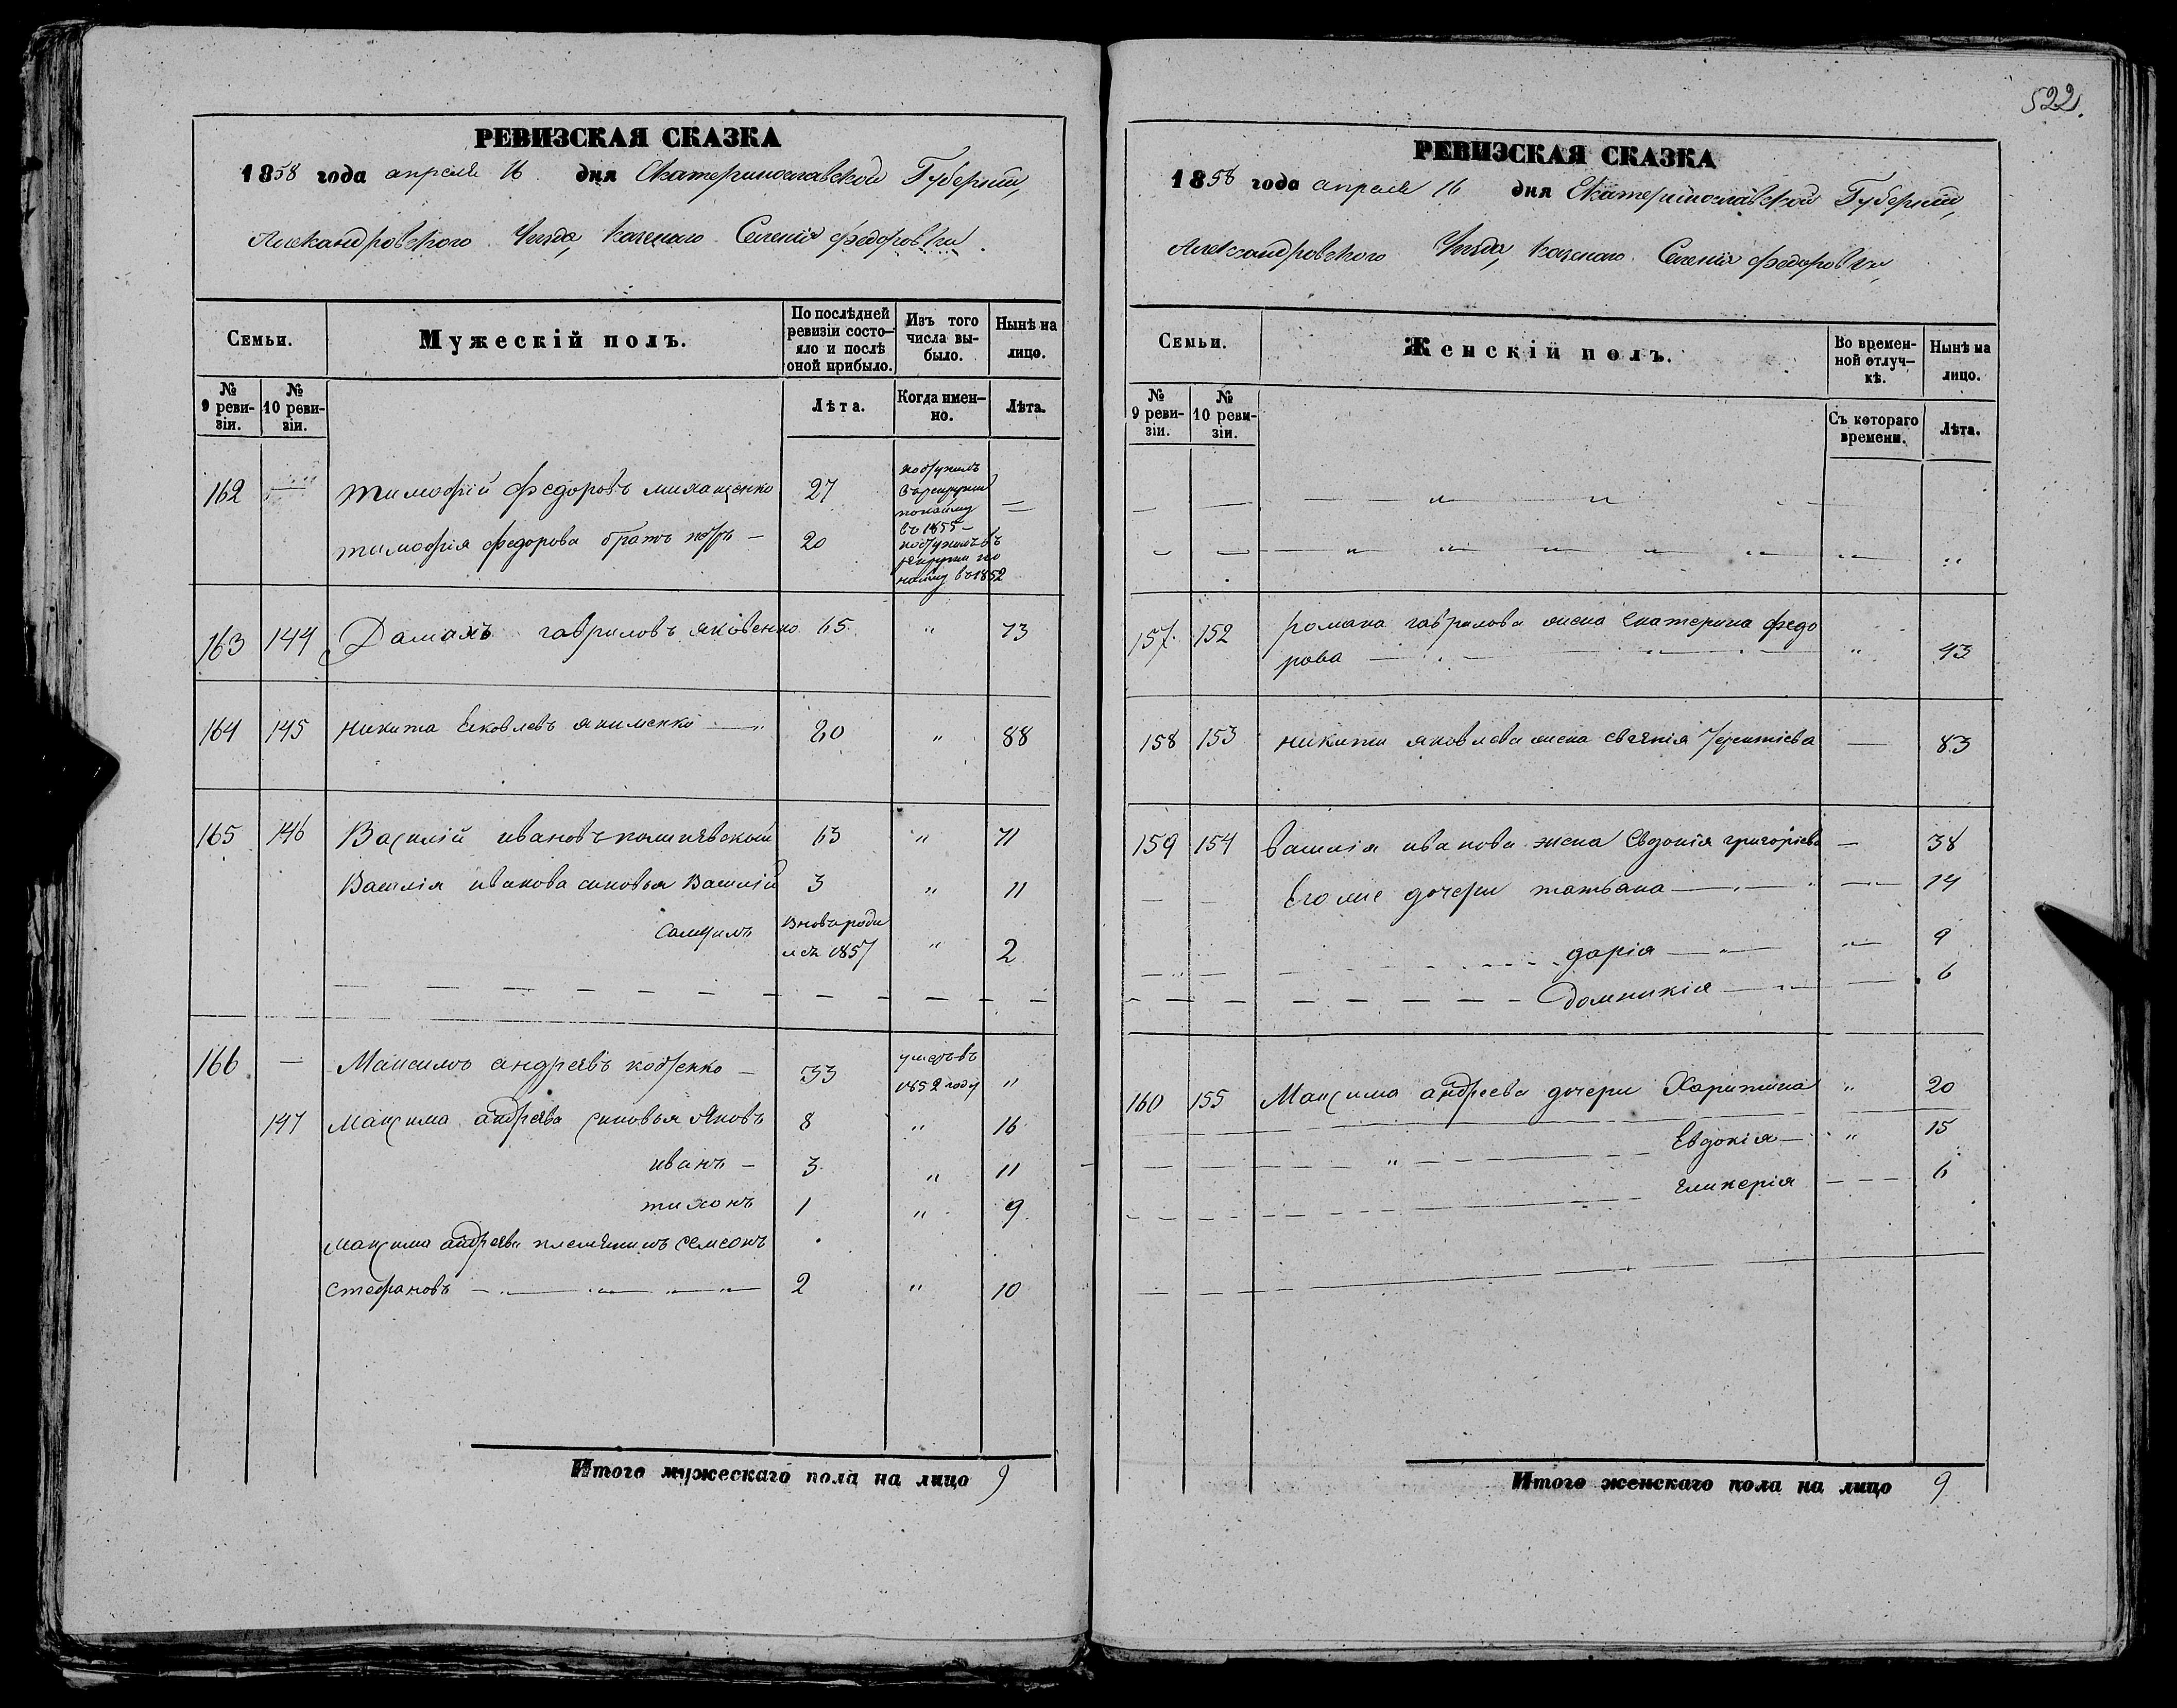 522.
РЕВИЗСКАЯ СКАЗКА
1858 года апреля 16 дня Екатеринославской Губерніи,
Александровского Уезда, Казенаго Селенія Федоровки.
Семьи.
Мужескій полъ.
По послѣдней ревизіи состо-
яло и послѣ оной прибыло.
Изъ того числа вы-
было.
Нынѣ на лицо.
№ 9 реви-
зіи.
№ 10 реви-
зіи.
Лѣта.
Когда имен-
но.
Лѣта.
162 — Тимофій Федоровъ 27 поступилъ в рекруты въ 1855 —
тимофія федорова братъ петръ — 20 поступилъ въ рекруты въ 1852
163 144 гавриловъ яковенко 65 " 73
164 145 Никита Ековлевъ якименко — 80 " 88
165 146 Василій ивановъ 63 " 71
Василія иванова сыновья Василій 3 " 11
Самуилъ вновь роди
лся 1857 " 2
166 — Максимъ андреевъ 33 умеръ въ
1852 году "
147 Максима андреева сыновья Яковъ 8 " 16
иванъ — 3 " 11
тихонъ 1 " 9
Максима андреева племянникъ семеонъ
стефановъ — 2 " 10
Итого мужескаго пола на лицо 9
РЕВИЗСКАЯ СКАЗКА
1858 года апреля 16 дня Екатеринославской Губерніи,
Александровского Уезда, Казенаго Селенія Федоровки,
Семьи.
Женскій полъ.
Во времен-
ной отлуч-
кѣ.
Нынѣ на лицо.
№ 9 реви-
зіи.
№ 10 реви-
зіи.
Съ котораго времени.
Лѣта.
157 152 романа гаврилова жена екатерина федо
рова — " 43
158 153 никиты яковлева жена Терентіева — 83
159 154 Василія иванова жена Евдокія григоріева — 38
Его же дочери татьана — 14
дарія — 9
Домникія — 6
160 155 Максима андреева дочери Харитина " 20
Евдокія — " 15
гликерія — 6
Итого женскаго пола на лицо 9